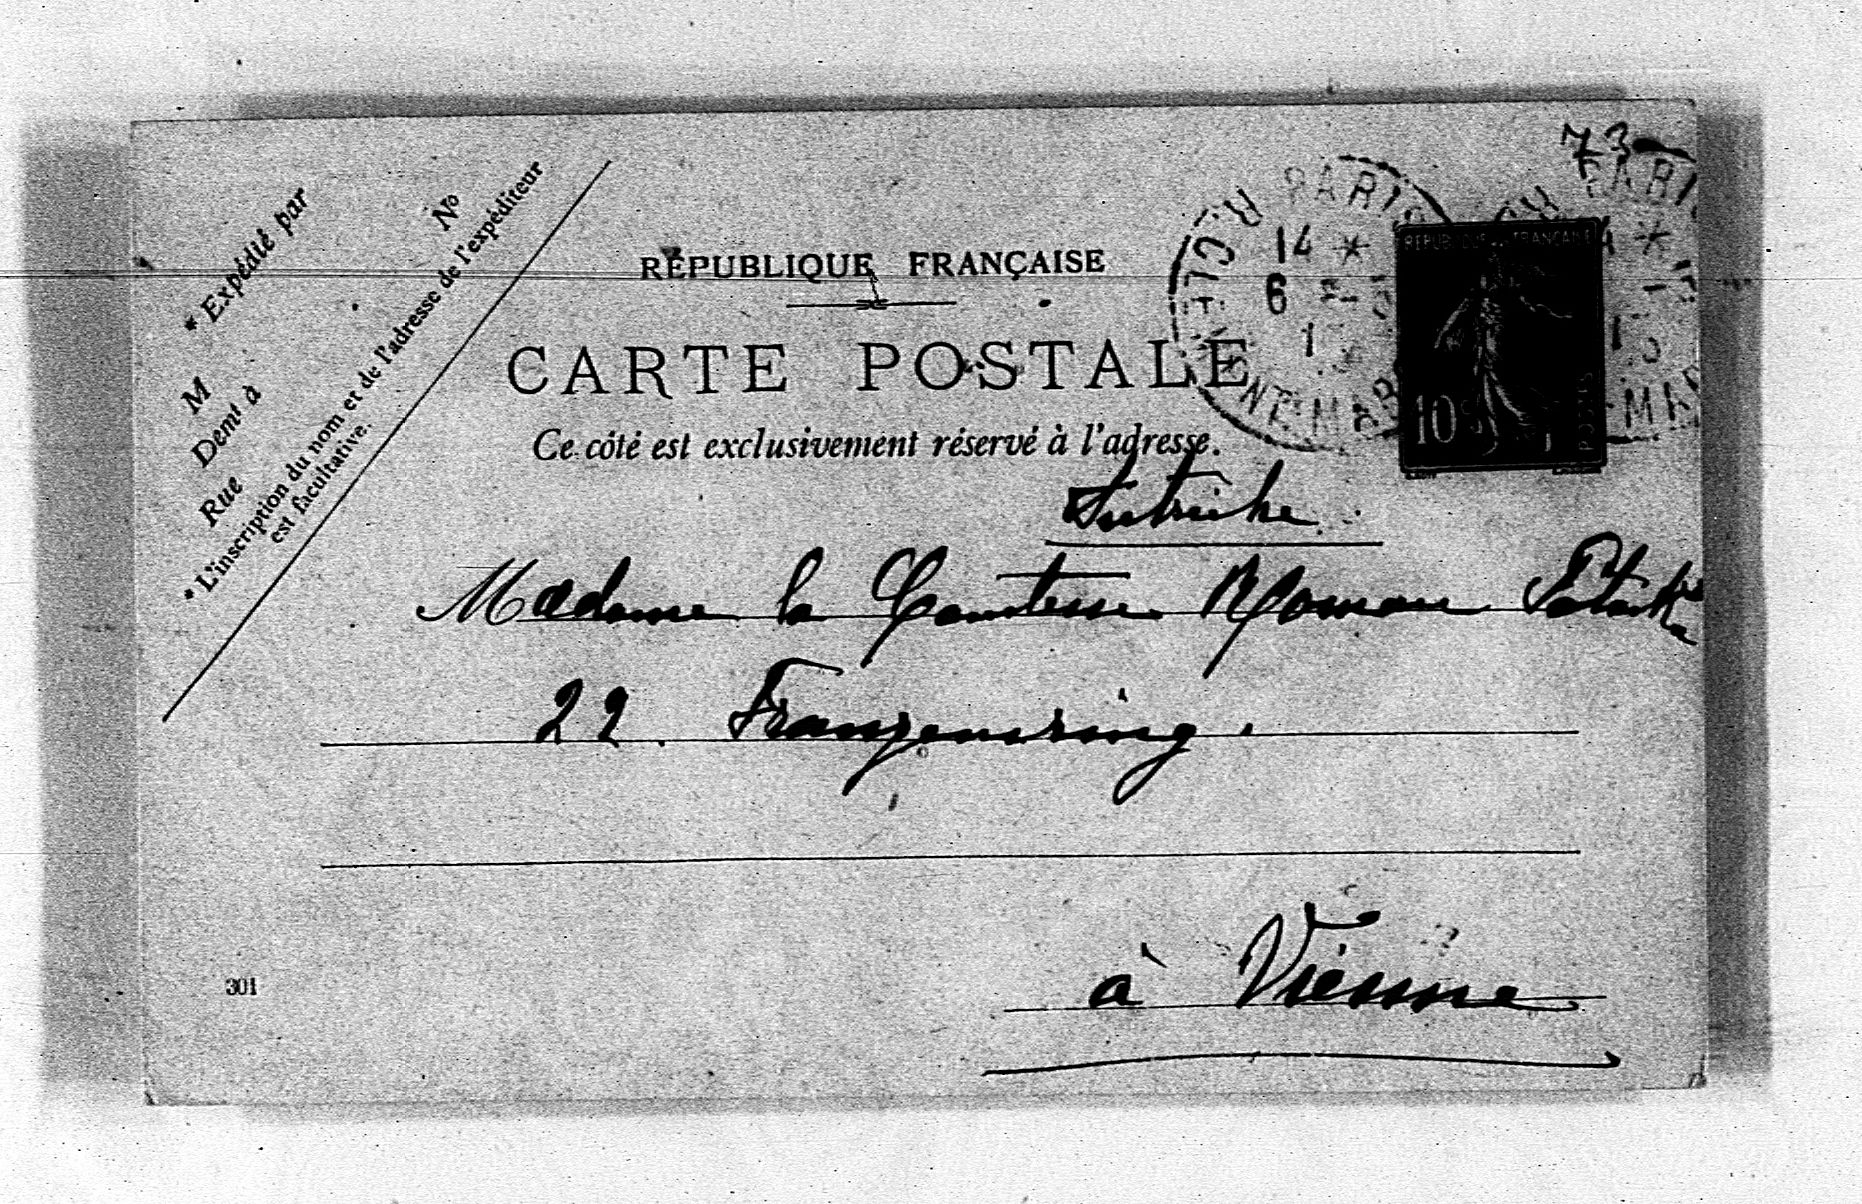 73
PARIS
R. CLÉMENT MAROT
14 *
6
RÉPUBLIQUE FRANÇAISE
10c
POSTES
* Expédié par
M
Demt à
Rue No
* L'inscription du nom et de l'adresse de l'expéditeur
est facultative.
RÉPUBLIQUE FRANÇAISE
CARTE POSTALE
Ce côté est exclusivement réservé à l'adresse.
Autriche
Madame la Comtesse Roman Potocka
22. Franzensring.
à Vienne
301